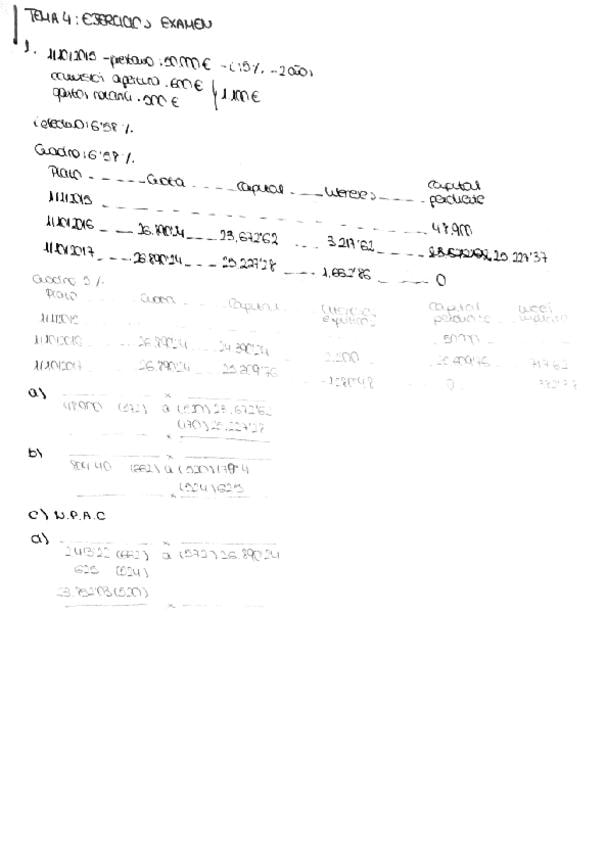 TEMA 4: EJERCICIOS EXAMEN
1. 1/10/2015 - préstamo: 50.000€ - i: 5% - 2 años
comisión apertura: 600€
gastos notaría: 500€ } 1.100€
i efectivo: 6'58%
Cuadro: 6'58%
Plazo Cuota Capital Intereses Capital pendiente
1/10/2015 48.900
1/10/2016 26.890'24 23.672'62 3.217'62 25.227'37
1/10/2017 26.890'24 25.227'28 1.662'86 0
Cuadro 5%
Plazo Cuota Capital Intereses Capital pendiente
1/10/2015 50.000
1/10/2016 26.890'24 24.390'24 2.500 25.609'76 717'62
1/10/2017 26.890'24 25.609'76 1.280'48 0
a) x
48.900 (572) a (520) 23.672'62
(170) 25.227'28
x
b) x
804'40 (662) a (520) 179'4
(524) 625
x
c) N.P.A.C
d) x
2413'22 (662) a (572) 26.890'24
625 (524)
(520)
x